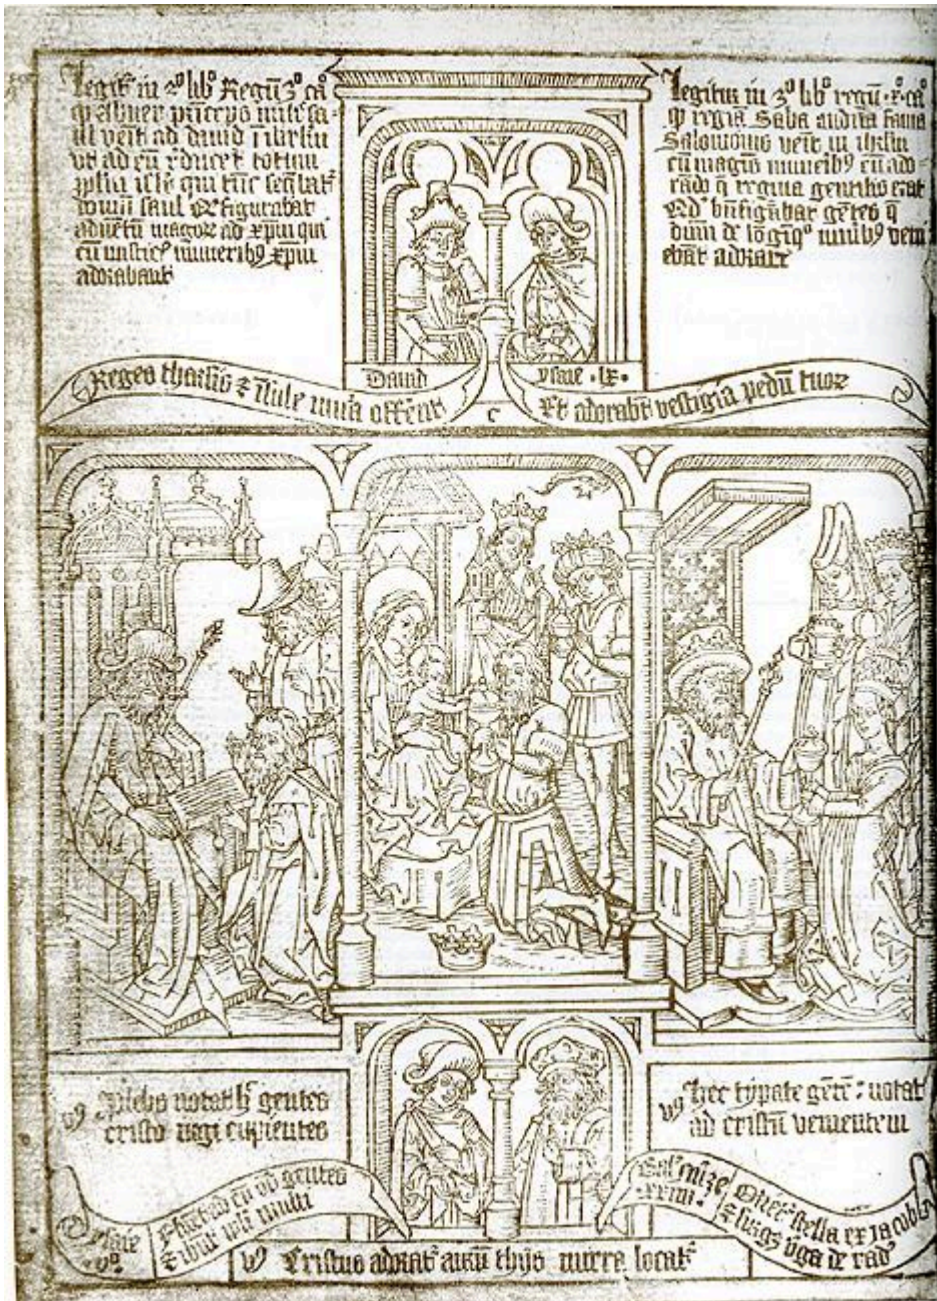 Legit' in 2º lib º Regū 3º cº
q Abner prīceps milic' sa-
ul venit ad david ī ihrl'm
vt ad eū rduceret totum
pp'lm isrl' qui tūc seq̄bat'
domū saul Qd figurabat
adventū magoꝝ ad xp̄m qui
cū misticꝭ munerib' xp̄m
adorabant
Legitur in 3º libº regū · x · cº
q̄ regina Saba audita fama
Salomonis venit in ihrl'm
cū magnis munerib' eū ado-
rādo q̄ regina gentilis erat
Qd bn̄ figurabat gētes q̄
dnm de lōginqº munib' veni
ebāt adorare
David
ysaie · lx ·
Reges tharsis ⁊ īsule mūa offerēt
c
Et adorabūt vestigia pedū tuoꝝ
vꝰ Plebs notat h' gentes
cristo iungi cupientes
vꝰ Hec typice gētē notat
ad cristū venientem
Ysaie
2º
Fluēt ad eū oēs gentes
⁊ ibūt pp'li multi
Balaā
xxiiii ·
Oriet' stella ex iacob
⁊ surget v̄ga de
vꝰ Cristus adorat' aurū thus mirra locat'